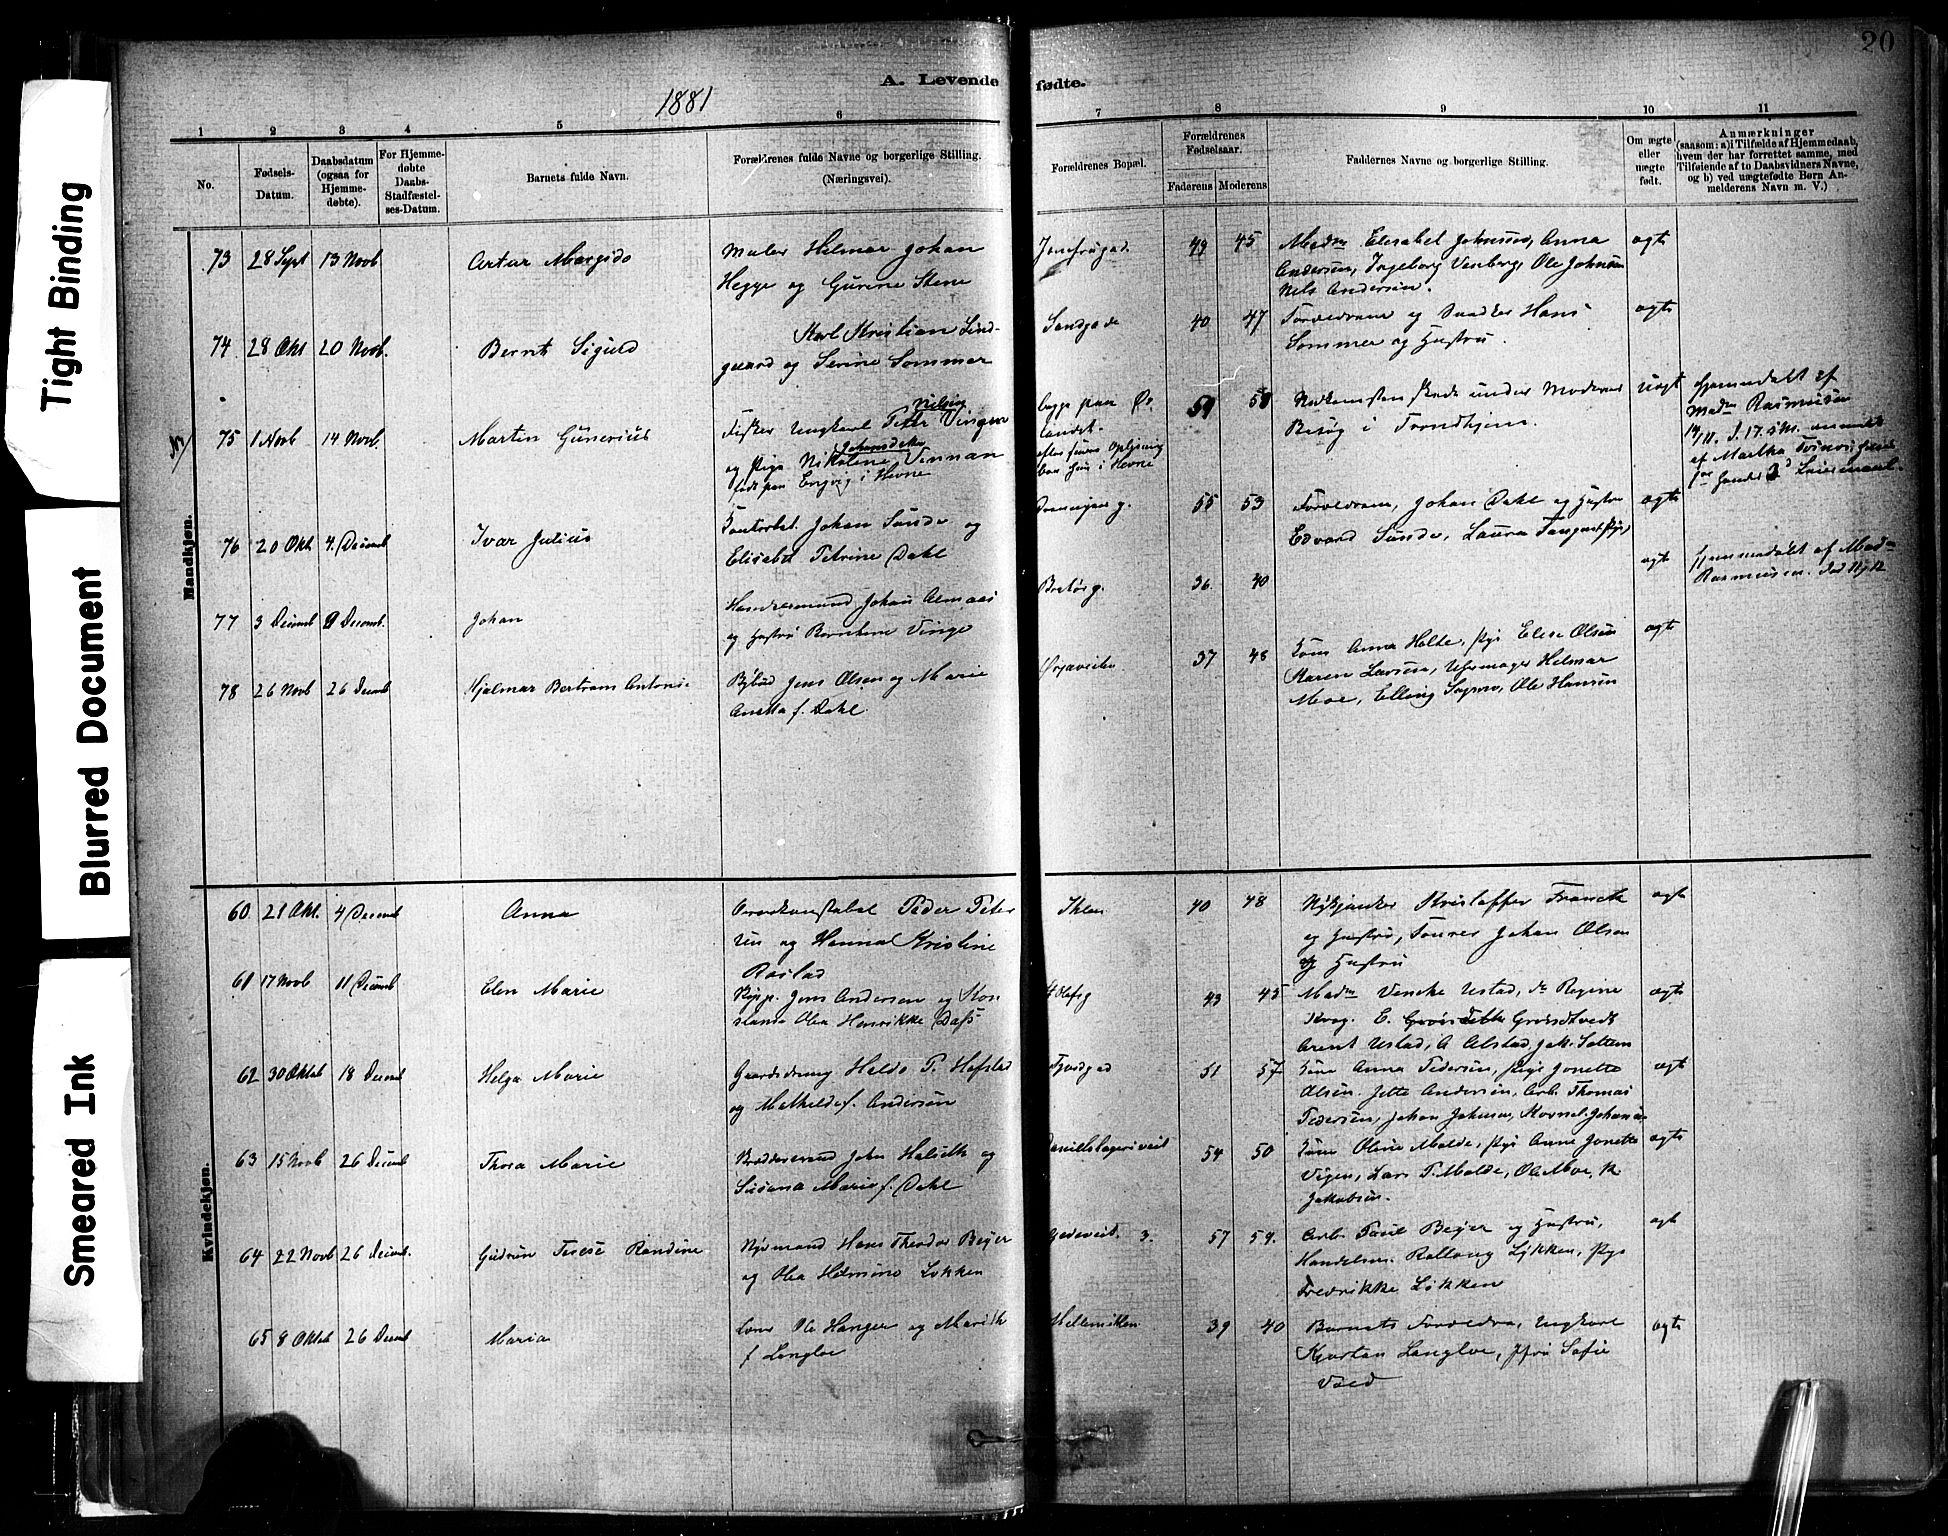 20
A. Levende fødte.
1881
1 2 3 4 5 6 7 8 9 10 11
No.
Fødsels-Datum.
Daabsdatum (ogsaa for Hjemmedøbte).
For Hjemmedøbte Daabs-Stadfæstelses-Datum.
Barnets fulde Navn.
Forældrenes fulde Navne og borgerlige Stilling. (Næringsvei).
Forældrenes Bopæl.
Forældrenes Fødselsaar.
Faderens Moderens
Faddernes Navne og borgerlige Stilling.
Om ægte eller uægte født.
Anmærkninger (saasom: a) i Tilfælde af Hjemmedaab, hvem der har forrettet samme, med Tilføiende af to Daabsvidners Navne, og b) ved uægtefødte Børn Anmelderens Navn m. V.)
Mandkjøn.
73 28 Sept 13 Novb Artur Margido
Maler Helmar Johan
Hegge og Gurine Stene
Jomfrugad. 43 45
Madm Elisabet Johnsen, Anna
Andersen, Ingeborg Venberg, Ole Johnsen
Nels Andersen.
ægte
74 28 Okt 20 Novb. Bernt Sigurd
Karl Kristian Lind-
gaard og Serine Sommer
Sandgade 40 47
Forældrene og Snedker Hans
Sommer og Hustru.
ægte
75 1 Novb 14 Novb. Martin Gunerius
Fisker Ungkarl Peter Nilsen Vingen
og Pige Nikoline Johnsdatter Vennan
født paa Engvig i Hevne
begge paa Ør-
landet.
efter hendes Oplysning
boe hun i Hevne
51 58
Nedkomsten skede under Moderens
Besøg i Trondhjem.
uægt
Hjemmedøbt af
Madm Rasmusen
14/11.
76 20 Okt. 4. Decemb Ivar Julius
Kontorbet. Johan Sunde og
Elisabet Petrine Dahl
Dronnigens g. 55 53
Forældrene, Johan Dahl og Hustru
Edvard Sunde, Laura
ægte
77 3 Decemb 9 Decemb. Johan
Handelsmand Johan Almaas
og Hustru Bernthine Vinge
Brebørg. 36 40
ægte
Hjemmedøbt af Madm
Rasmusen. Død 11/12
78 26 Novb 26 Decemb Hjalmar Bertrans Antoni.
Bybud Jens Olsen og Marie
Anetta f. Dahl.
Ørjaveiten 37 48
Kone Anna Holte, Pige Elese Olsen
Karen Larsen, Uhrmager Helmar
Moe, Elling Sagmo, Ole Hansen
ægte
Kvindekjøn.
60 21 Okt. 4 Decemb Anna
Overkonstabel Peder Peter
sen og Hanna Kristine
Rostad
Ihlen 40 48
Kristoffer Franck
og Hustru, Johan Olsen
og Hustru
ægte
61 17 Novb 11 Decemb Elen Marie
Kjøp. Jens Andersen og Kon
stanse Olea Henrikke Dass
St Olafsg 43 45
Madm Vencke Ustad, do Regine
Krog. E. Grøndtvedt
Arent Ustad, A Alstad, Jak. Saltem
ægte
62 30 Oktob 18 Decemb Helga Marie
Gaardsdreng Haldo P. Hofstad
og Mathilde f. Andersen
Fjordgad 51 57
Kone Anna Pedersen, Pige Jonette
Olsen. Jette Andersen, Arb. Thomas
Pedersen, Johan Johnsen, Kornel. Johansen
ægte
63 15 Novb 26 Decemb Thora Marie
John Halseth og
Susana Marie f. Dahl
Danielsbagerisveit 54 50
Kone Oline Molde, Pige Anne Jonette
Vigen, Lars P. Molde, Ole Moe, K.
Jakobsen.
ægte
64 22 Novb 26 Decemb. Gudrun Terese Randine
Kjørmand Hans Theodor Beyer
og Olea Helmine Løkken
Gjedeveit. 3. 57 59.
Arb. Paul Beyer og Hustru,
Handelsm. Løkken, Pige
Fredrikke Løkken
ægt
65 8 Oktob 26 Decemb Maria
Ole Hanger og Marith
f Langloe
Mellemilen 39 40
Barnets Forældre, Ungkarl
Kjartan Langloe, Jfru Sofie
Vold
ægte
Tight Binding
Blurred Document
Smeared Ink